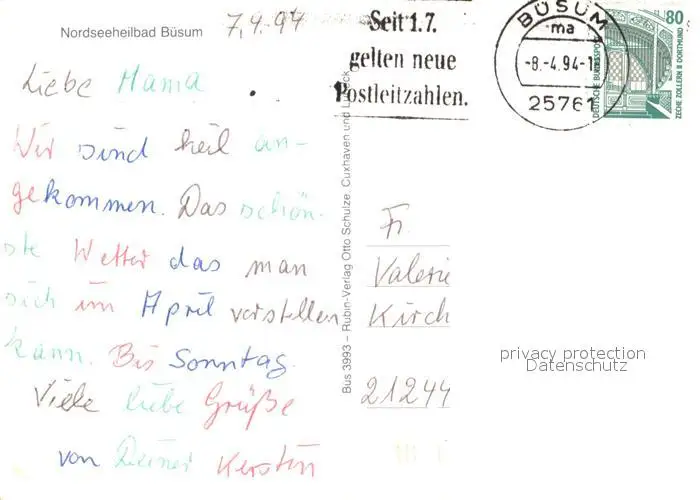 Nordseeheilbad Büsum
7.4.94
Liebe Mama
Wir sind heil an-
gekommen. Das schön-
ste Wetter das man
sich im April vorstellen
kann. Bis Sonntag.
Viele liebe Grüße
von Deiner Kerstin
Bus 3993 – Rubin-Verlag Otto Schulze, Cuxhaven und Lübeck
Seit 1.7.
gelten neue
Postleitzahlen.
BÜSUM
ma
-8.-4.94-1
25761
80
DEUTSCHE BUNDESPOST
ZECHE ZOLLERN II DORTMUND
Fr.
Valerie
Kirch
21244
privacy protection
Datenschutz